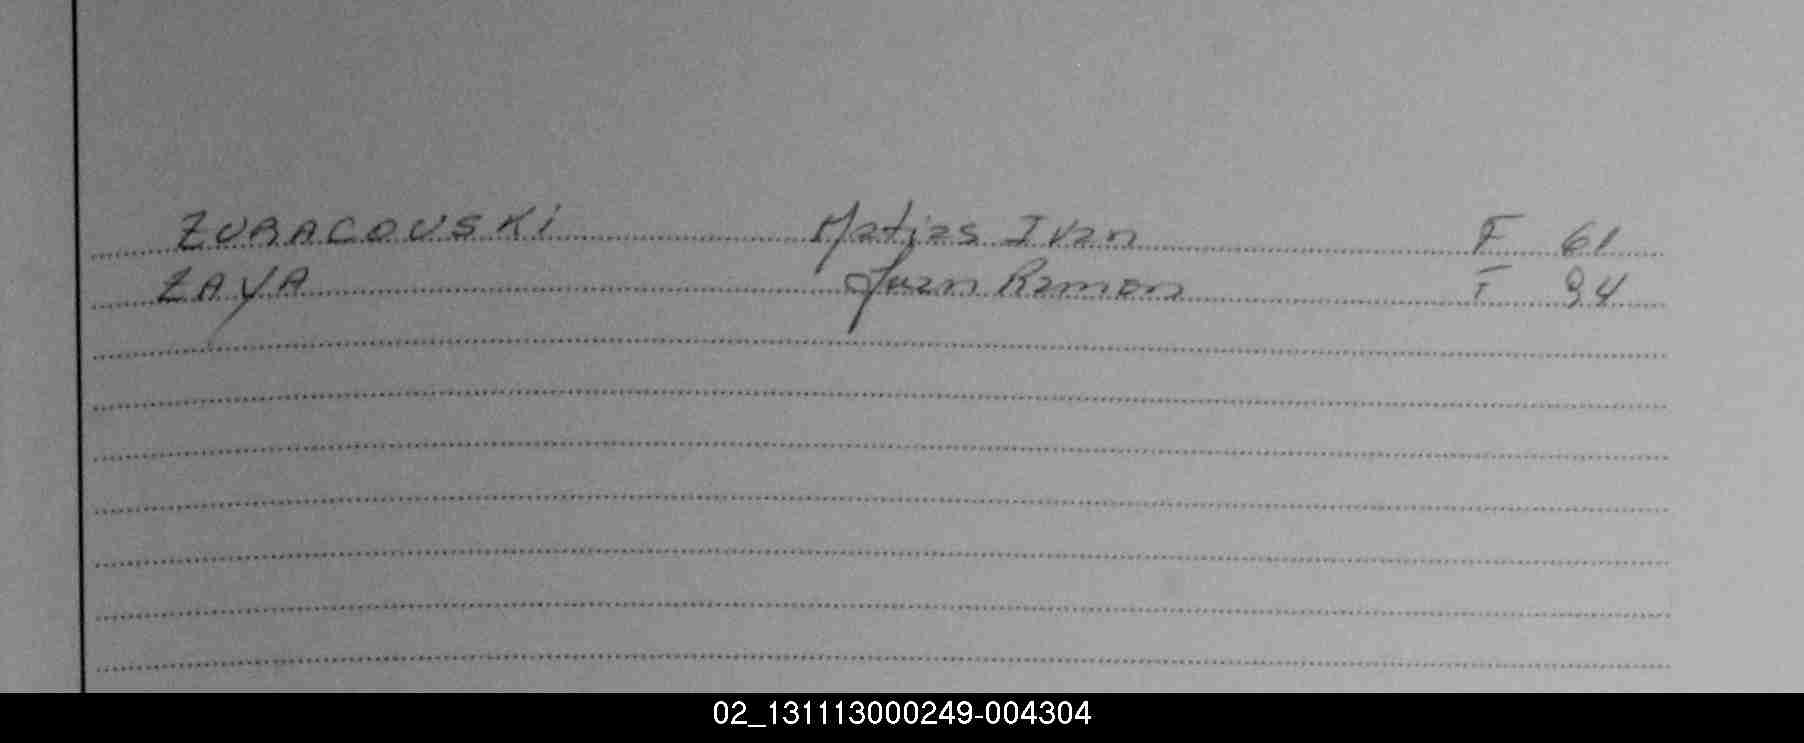 ZURACOUSKi Matias Ivan F 61
ZAYA Juan Ramon I 94
02_131113000249-004304